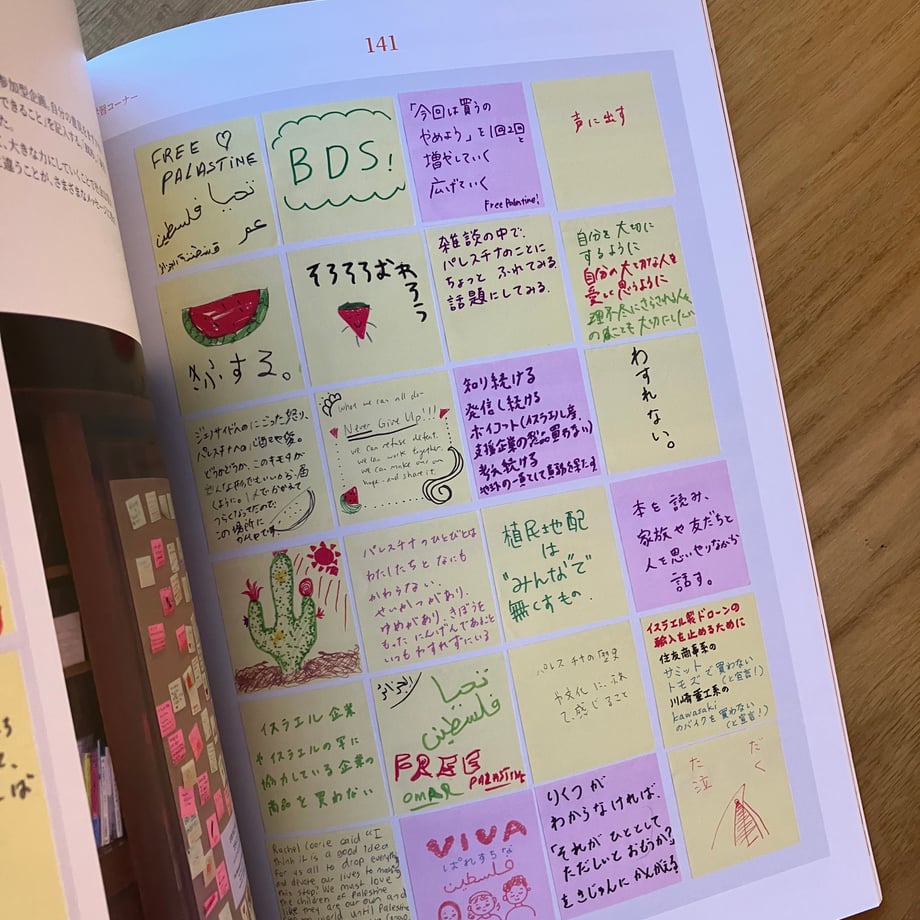 141
習コーナー
参加型企画。自分の意見を
できること」を記入する
大きな力にしていくこと
違うことが、さまざまなメッセージ
FREE ♡
PALASTINE
تحيا فلسطين
BDS!
「今回は買うの
やめよう」を1回2回と
増やしていく
広げていく
Free Palestine!
声に出す
する。
そろそろおわろう
雑談の中で、
パレスチナのことに
ちょっと ふれてみる
話題にしてみる.
自分を大切に
するように
自分の大切な人を
愛しく思うように
理不尽にさらされる人々
の事ことも大切にしたい
ジェノサイドへの にごった怒り、
パレスチナへの
どうかどうか、このキモチが
どんな形でもいいから 届
くように。1人でかかえて
つらくなってたので、
この場所に
What we can all do-
Never Give Up!!!
we can refuse defeat.
we can work together.
we can make our own
hope - and share it.
知り続ける
発信し続ける
ボイコット(イスラエル産、
支援企業の製品買わない)
考え続ける
地球の一員として責務を果たす
わすれない。
パレスチナのひとびとは
わたしたちと なにも
かわらない.
せいかつがあり.
ゆめがあり. きぼうを
もった にんげんであること
いつも わすれずにいる
植民地支配
は
"みんな"で
無くすもの.
本を読み、
家族や友だちと
人を思いやりながら
話す。
イスラエル企業
やイスラエルの軍に
協力している企業の
商品を買わない
تحيا
فلسطين
FREE
OMAR PALASTINE
パレスチナの歴史
や文化に、ふれ
て、感じること
イスラエル製ドローンの
輸入を止めるために
住友商事系の
サミット
トモズで買わない
(と宣言!)
川崎重工系の
kawasaki
のバイクを買わない
(と宣言!)
Rachel Corrie said "I
think it is a good idea
for us all to drop everything
and devote our lives to making
this stop." We must love
the children of Palestine
like they are our own and
world until Palestine
VIVA
ぱれすちな
فلسطين
りくつが
わからなければ、
「それが ひととして
ただしいと おもうか?」
をきじゅんに かんがえる